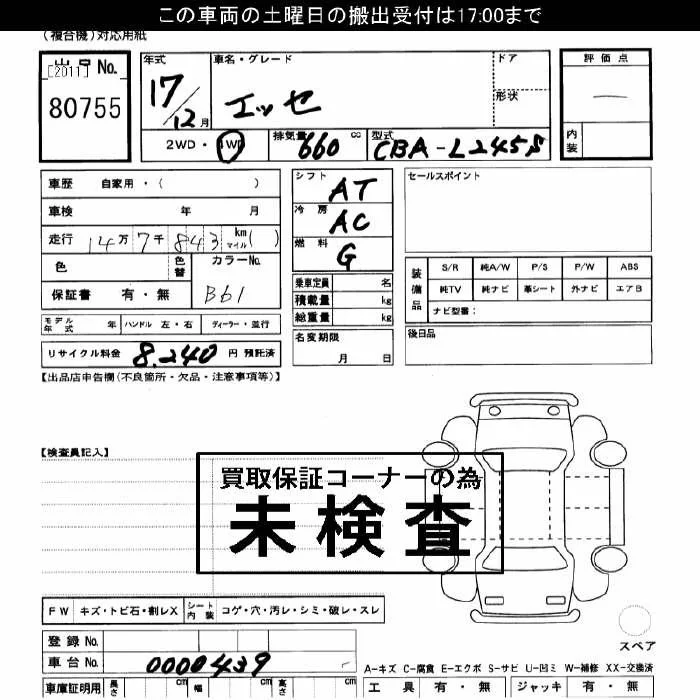 この車両の土曜日の搬出受付は17:00まで
(複合機)対応用紙
[2011] No.
80755
年式
17/12 月
車名・グレード
エッセ
ドア
形状
評価点
内装
2WD・4WD
排気量 660 cc
型式 CBA-L245S
車歴 自家用・( )
車検 年 月
走行 14万7千843 km マイル( )
色
色替
カラーNo.
B61
保証書 有・無
モデル年式 年
ハンドル 左・右
ディーラー・並行
リサイクル料金 8.240 円 預託済
シフト AT
冷房 AC
燃料 G
乗車定員 名
積載量 kg
総重量 kg
名変期限
月 日
セールスポイント
装備品
S/R 純A/W P/S P/W ABS
純TV 純ナビ 革シート 外ナビ エアB
ナビ型番:
後日品
【出品店申告欄(不良箇所・欠品・注意事項等)】
【検査員記入】
買取保証コーナーの為
未検査
FW キズ・トビ石・割レX
シート内装 コゲ・穴・汚レ・シミ・破レ・スレ
登録No.
車台No. 0000439
車庫証明用 長さ cm 幅 cm 高さ cm
スペア
A-キズ C-腐食 E-エクボ S-サビ U-凹ミ W-補修 XX-交換済
工具 有・無 ジャッキ 有・無